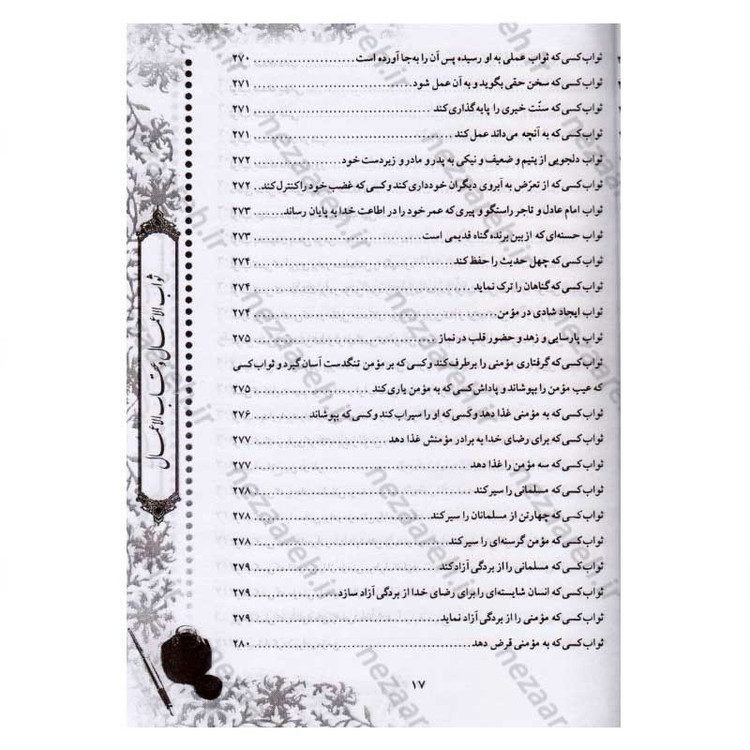 ثواب کسی که ثواب عملی به او رسیده پس آن را به‌جا آورده است ........................ ۲۷۰
ثواب کسی که سخن حقی بگوید و به آن عمل شود ........................ ۲۷۱
ثواب کسی که سنّت خیری را پایه‌گذاری کند ........................ ۲۷۱
ثواب کسی که به آنچه می‌داند عمل کند ........................ ۲۷۱
ثواب دلجویی از یتیم و ضعیف و نیکی به پدر و مادر و زیردست خود ........................ ۲۷۲
ثواب کسی که از تعرّض به آبروی دیگران خودداری کند و کسی که غضب خود را کنترل کند .... ۲۷۲
ثواب امام عادل و تاجر راستگو و پیری که عمر خود را در اطاعت خدا به پایان رساند ....... ۲۷۳
ثواب حسنه‌ای که از بین برنده گناه قدیمی است ........................ ۲۷۳
ثواب کسی که چهل حدیث را حفظ کند ........................ ۲۷۴
ثواب کسی که گناهان را ترک نماید ........................ ۲۷۴
ثواب ایجاد شادی در مؤمن ........................ ۲۷۴
ثواب پارسایی و زهد و حضور قلب در نماز ........................ ۲۷۵
ثواب کسی که گرفتاری مؤمنی را برطرف کند و کسی که بر مؤمن تنگدست آسان گیرد و ثواب کسی
که عیب مؤمن را بپوشاند و پاداش کسی که به مؤمن یاری کند ........................ ۲۷۵
ثواب کسی که به مؤمنی غذا دهد و کسی که او را سیراب کند و کسی که بپوشاند ............ ۲۷۶
ثواب کسی که برای رضای خدا به برادر مؤمنش غذا دهد ........................ ۲۷۷
ثواب کسی که سه مؤمن را غذا دهد ........................ ۲۷۷
ثواب کسی که مسلمانی را سیر کند ........................ ۲۷۸
ثواب کسی که چهارتن از مسلمانان را سیر کند ........................ ۲۷۸
ثواب کسی که مؤمن گرسنه‌ای را سیر کند ........................ ۲۷۸
ثواب کسی که مسلمانی را از بردگی آزاد کند ........................ ۲۷۹
ثواب کسی که انسان شایسته‌ای را برای رضای خدا از بردگی آزاد سازد ................ ۲۷۹
ثواب کسی که مؤمنی را از بردگی آزاد نماید ........................ ۲۷۹
ثواب کسی که به مؤمنی قرض دهد ........................ ۲۸۰
۱۷
ثواب الاعمال و عقاب الاعمال
nezaareh.ir